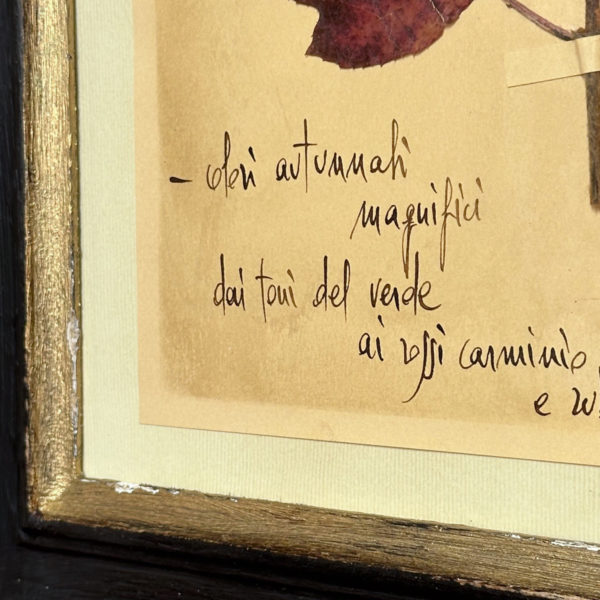 - colori autunnali
magnifici
dai toni del verde
ai rossi carminio
e